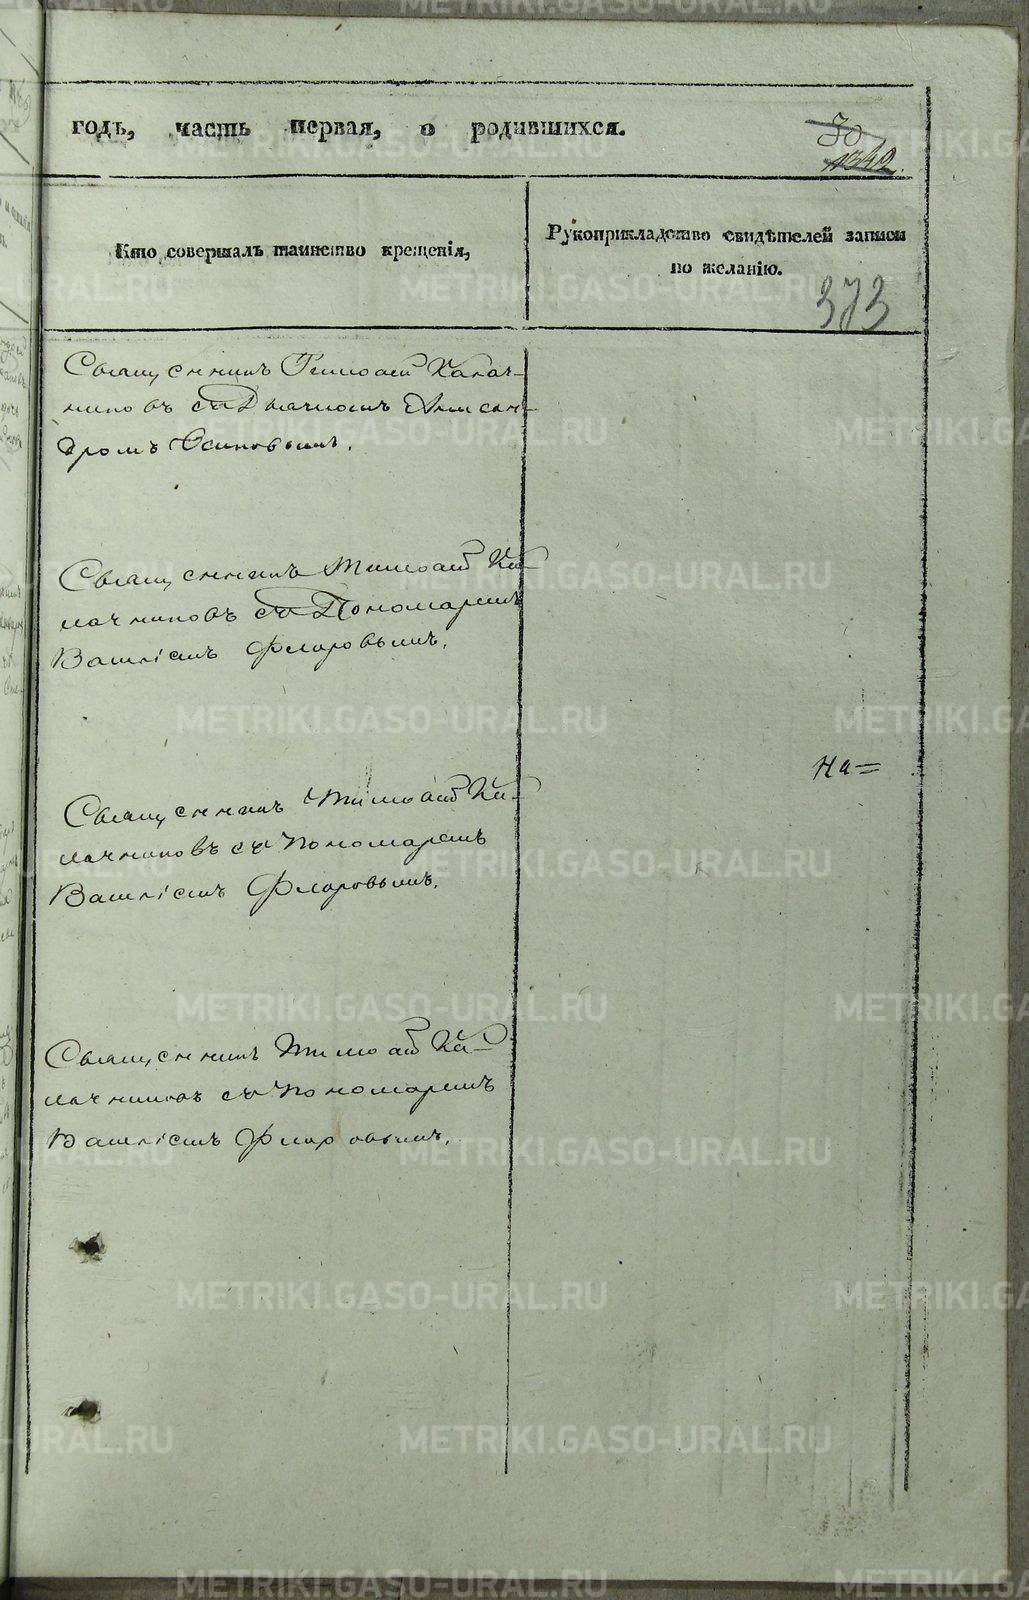 годъ, часть первая, о родившихся.
30
1342.
Кто совершалъ таинство крещенія,
Рукоприкладство свидѣтелей записи
по желанію.
373
Священникъ Тимоѳей Калач-
никовъ съ Дьячкомъ Алексан-
дромъ Осиповымъ.
Священникъ Тимоѳей Ка-
лачниковъ съ Пономаремъ
Василіемъ Флоровымъ.
На=
Священникъ Тимоѳей Ка-
лачниковъ съ Пономаремъ
Василіемъ Флоровымъ.
Священникъ Тимоѳей Ка-
лачниковъ съ Пономаремъ
Василіемъ Флоровымъ.
METRIKI.GASO-URAL.RU